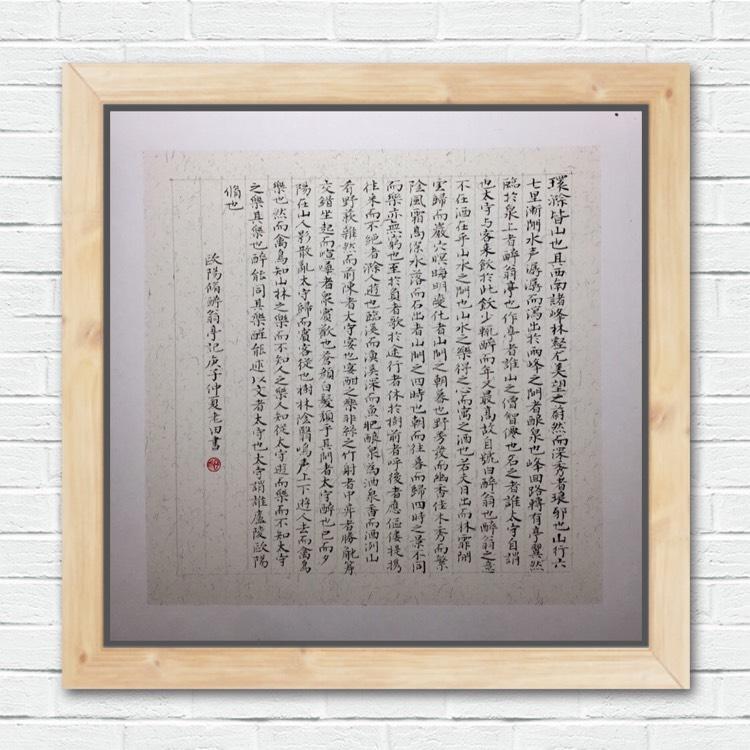 環滁皆山也其西南諸峰林壑尤美望之蔚然而深秀者琅邪也山行六
七里漸聞水声潺潺而瀉出於兩峰之間者釀泉也峰回路轉有亭翼然
臨於泉上者醉翁亭也作亭者誰山之僧智僊也名之者誰太守自謂
也太守与客来飲於此飲少輒醉而年又最高故自號曰醉翁也醉翁之意
不在酒在乎山水之間也山水之樂得之心而寓之酒也若夫日出而林霏開
雲歸而巖穴暝晦明變化者山間之朝暮也野芳發而幽香佳木秀而繁
陰風霜高潔水落而石出者山間之四時也朝而往暮而歸四時之景不同
而樂亦無窮也至於負者歌於途行者休於樹前者呼後者應傴僂提携
往来而不絕者滁人遊也臨溪而漁溪深而魚肥釀泉為酒泉香而酒洌山
肴野蔌雜然而前陳者太守宴也宴酣之樂非絲之竹射者中弈者勝觥籌
交錯坐起而諠嘩者衆賓歡也蒼顏白髮頹乎其間者太守醉也已而夕
陽在山人影散亂太守歸而賓客從也樹林陰翳鳴聲上下遊人去而禽鳥
樂也然而禽鳥知山林之樂而不知人之樂人知從太守遊而樂而不知太守
之樂其樂也醉能同其樂醒能述以文者太守也太守謂誰廬陵歐陽
脩也
歐陽脩醉翁亭記庚子仲夏老田書